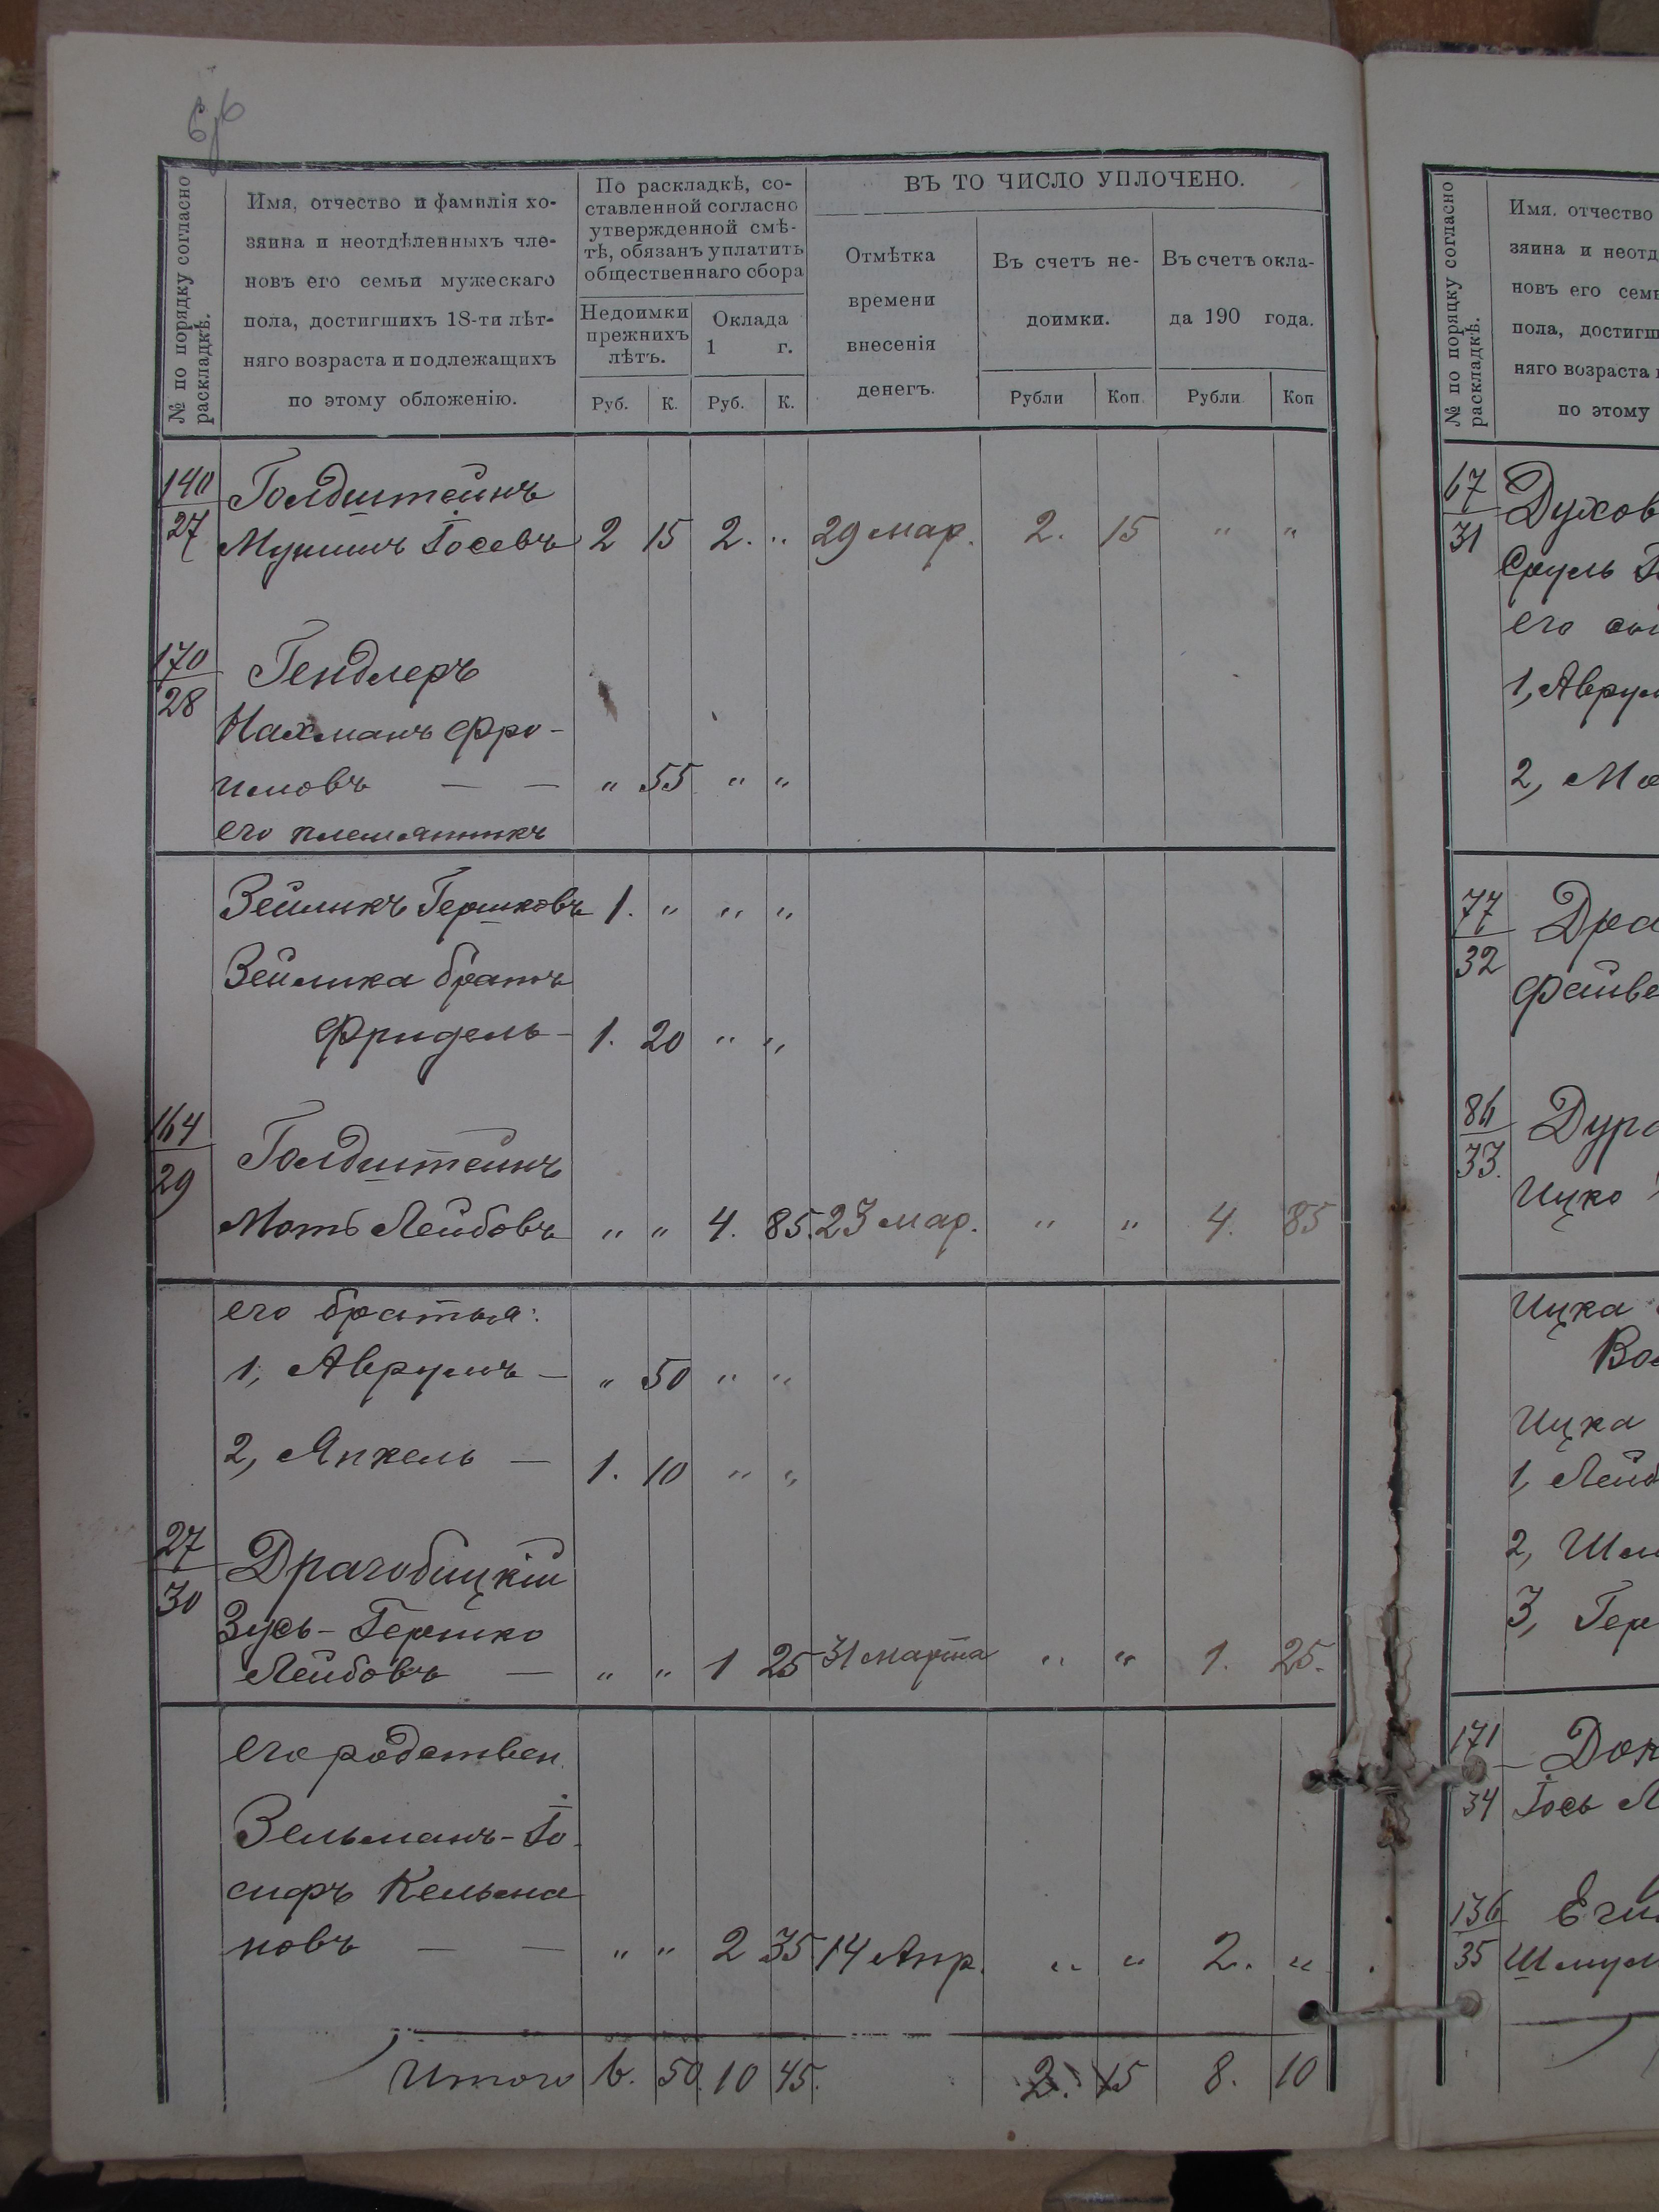 6 6
№ по порядку согласно
раскладкѣ.
Имя, отчество и фамилія хо-
зяина и неотдѣленныхъ чле-
новъ его семьи мужескаго
пола, достигшихъ 18-ти лѣт-
няго возраста и подлежащихъ
по этому обложенію.
По раскладкѣ, со-
ставленной согласно
утвержденной смѣ-
тѣ, обязанъ уплатить
общественнаго сбора
Недоимки
прежнихъ
лѣтъ.
Оклада
1 г.
Руб. К. Руб. К.
ВЪ ТО ЧИСЛО УПЛОЧЕНО.
Отмѣтка
времени
внесенія
денегъ.
Въ счетъ не-
доимки.
Въ счетъ окла-
да 190 года.
Рубли Коп. Рубли. Коп
140 Голдштейнъ
27 Мунишъ Іосевъ 2 15 2. „ 29 мар. 2. 15 „ „
170 Гендлеръ
28 Нахманъ Фро-
имовъ — — „ 55 „ „
его племянникъ
Зейликъ Гершковъ 1. „ „ „
Зейлика братъ
Фридель - 1. 20 „ „
164 Голдштейнъ
29
Мотъ Лейбовъ „ „ 4. 85. 23 мар. „ „ 4. 85
его братья:
1, Аврумъ — „ 50 „ „
2, Янкель — 1. 10 „ „
27 Драгобицкій
30 Зусь-Гершко
Лейбовъ — „ „ 1 25 31 марта „ „ 1. 25.
его родствен.
Зельманъ-Іо-
сифъ Кельма
новъ — — „ „ 2 35 14 Апр. „ „ 2. „
Итого 6. 50. 10 45. 2. 15 8. 10
№ по порядку согласно
раскладкѣ.
Имя, отчество
зяина и неотд
новъ его семь
пола, достигш
няго возраста
по этому
67 Духов
31 Сруль
его сы
1, Аврум
2, Мо
77 Дра
32 Файве
86 Дура
33. Ицко
Ицка
Ицка
1, Лейб
2, Шм
3, Гер
171 Дон
34 Іось Л
136
35 Шмул